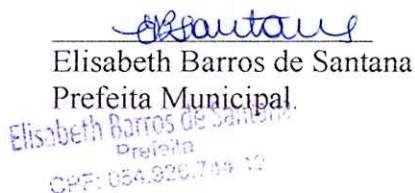 EBSantana
Elisabeth Barros de Santana
Prefeita Municipal.
Elisabeth Barros de Santana
Prefeita
CPF: 054.926.744-12